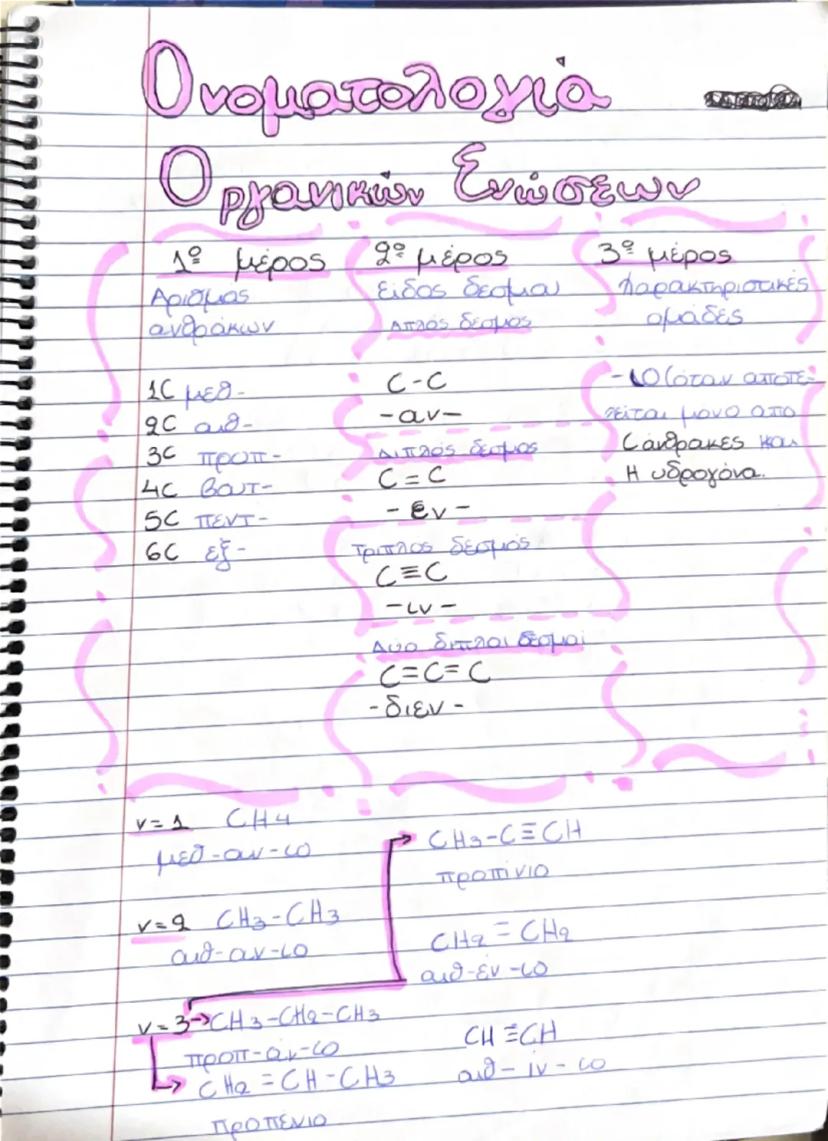 Ονοματολογία
Οργανικών Ενώσεων
1º μέρος
Αριθμος
ανθράκων
1C μεθ-
2C αιθ-
3C προπ-
4C βουτ-
5C πεντ-
6C εξ-
2º μέρος
Είδος δεσμου
Απλός δεσμος
C-C
-αν-
Διπλός δεσμος
C=C
-εν-
Τριπλος δεσμός
C≡C
-ιν-
Δύο διπλοι δεσμοί
C=C=C
-διεν-
3º μέρος
Χαρακτηριστικές
ομάδες
-ιο (όταν αποτε-
λείται μονο απο
C άνθρακες και
H υδρογόνα.
ν=1 CH4
μεθ-αν-ιο
ν=2 CH3-CH3
αιθ-αν-ιο
ν=3→CH3-CH2-CH3
προπ-άν-ιο
CH2=CH-CH3
προπένιο
CH3-C≡CH
προπίνιο
CH2=CH2
αιθ-έν-ιο
CH≡CH
αιθ-ίν-ιο